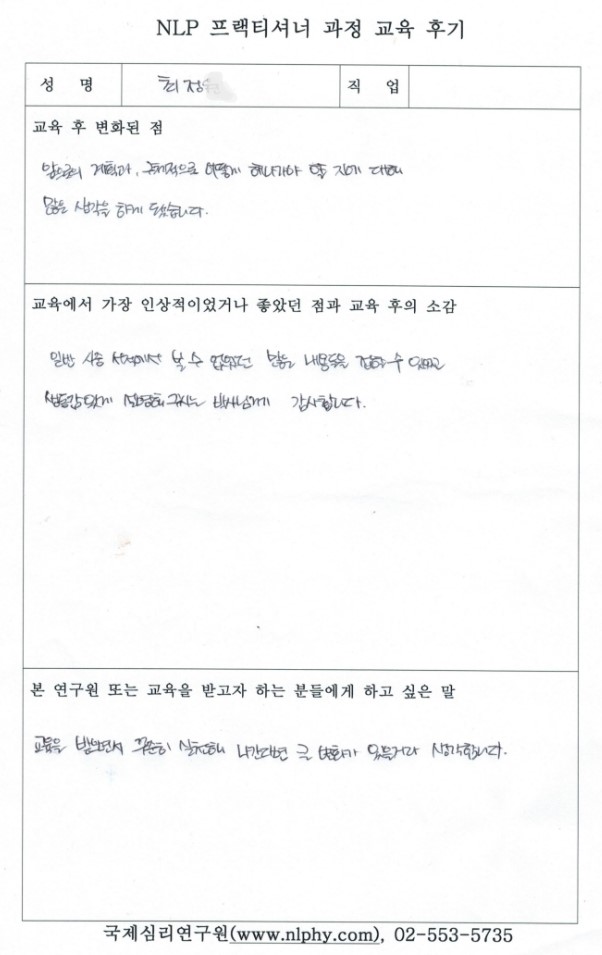 NLP 프랙티셔너 과정 교육 후기
성 명 최정 직 업
교육 후 변화된 점
앞으로의 계획과, 구체적으로 어떻게 해나가야 할 지에 대해
많은 생각을 하게 되었습니다.
교육에서 가장 인상적이었거나 좋았던 점과 교육 후의 소감
일반 시중 서적에서 볼 수 없었던 많은 내용들을 접할 수 있었고
생동감있게 설명해 주시는 박사님께 감사합니다.
본 연구원 또는 교육을 받고자 하는 분들에게 하고 싶은 말
교육을 받으면서 꾸준히 실천해 나간다면 큰 변화가 있을거라 생각합니다.
국제심리연구원(www.nlphy.com), 02-553-5735